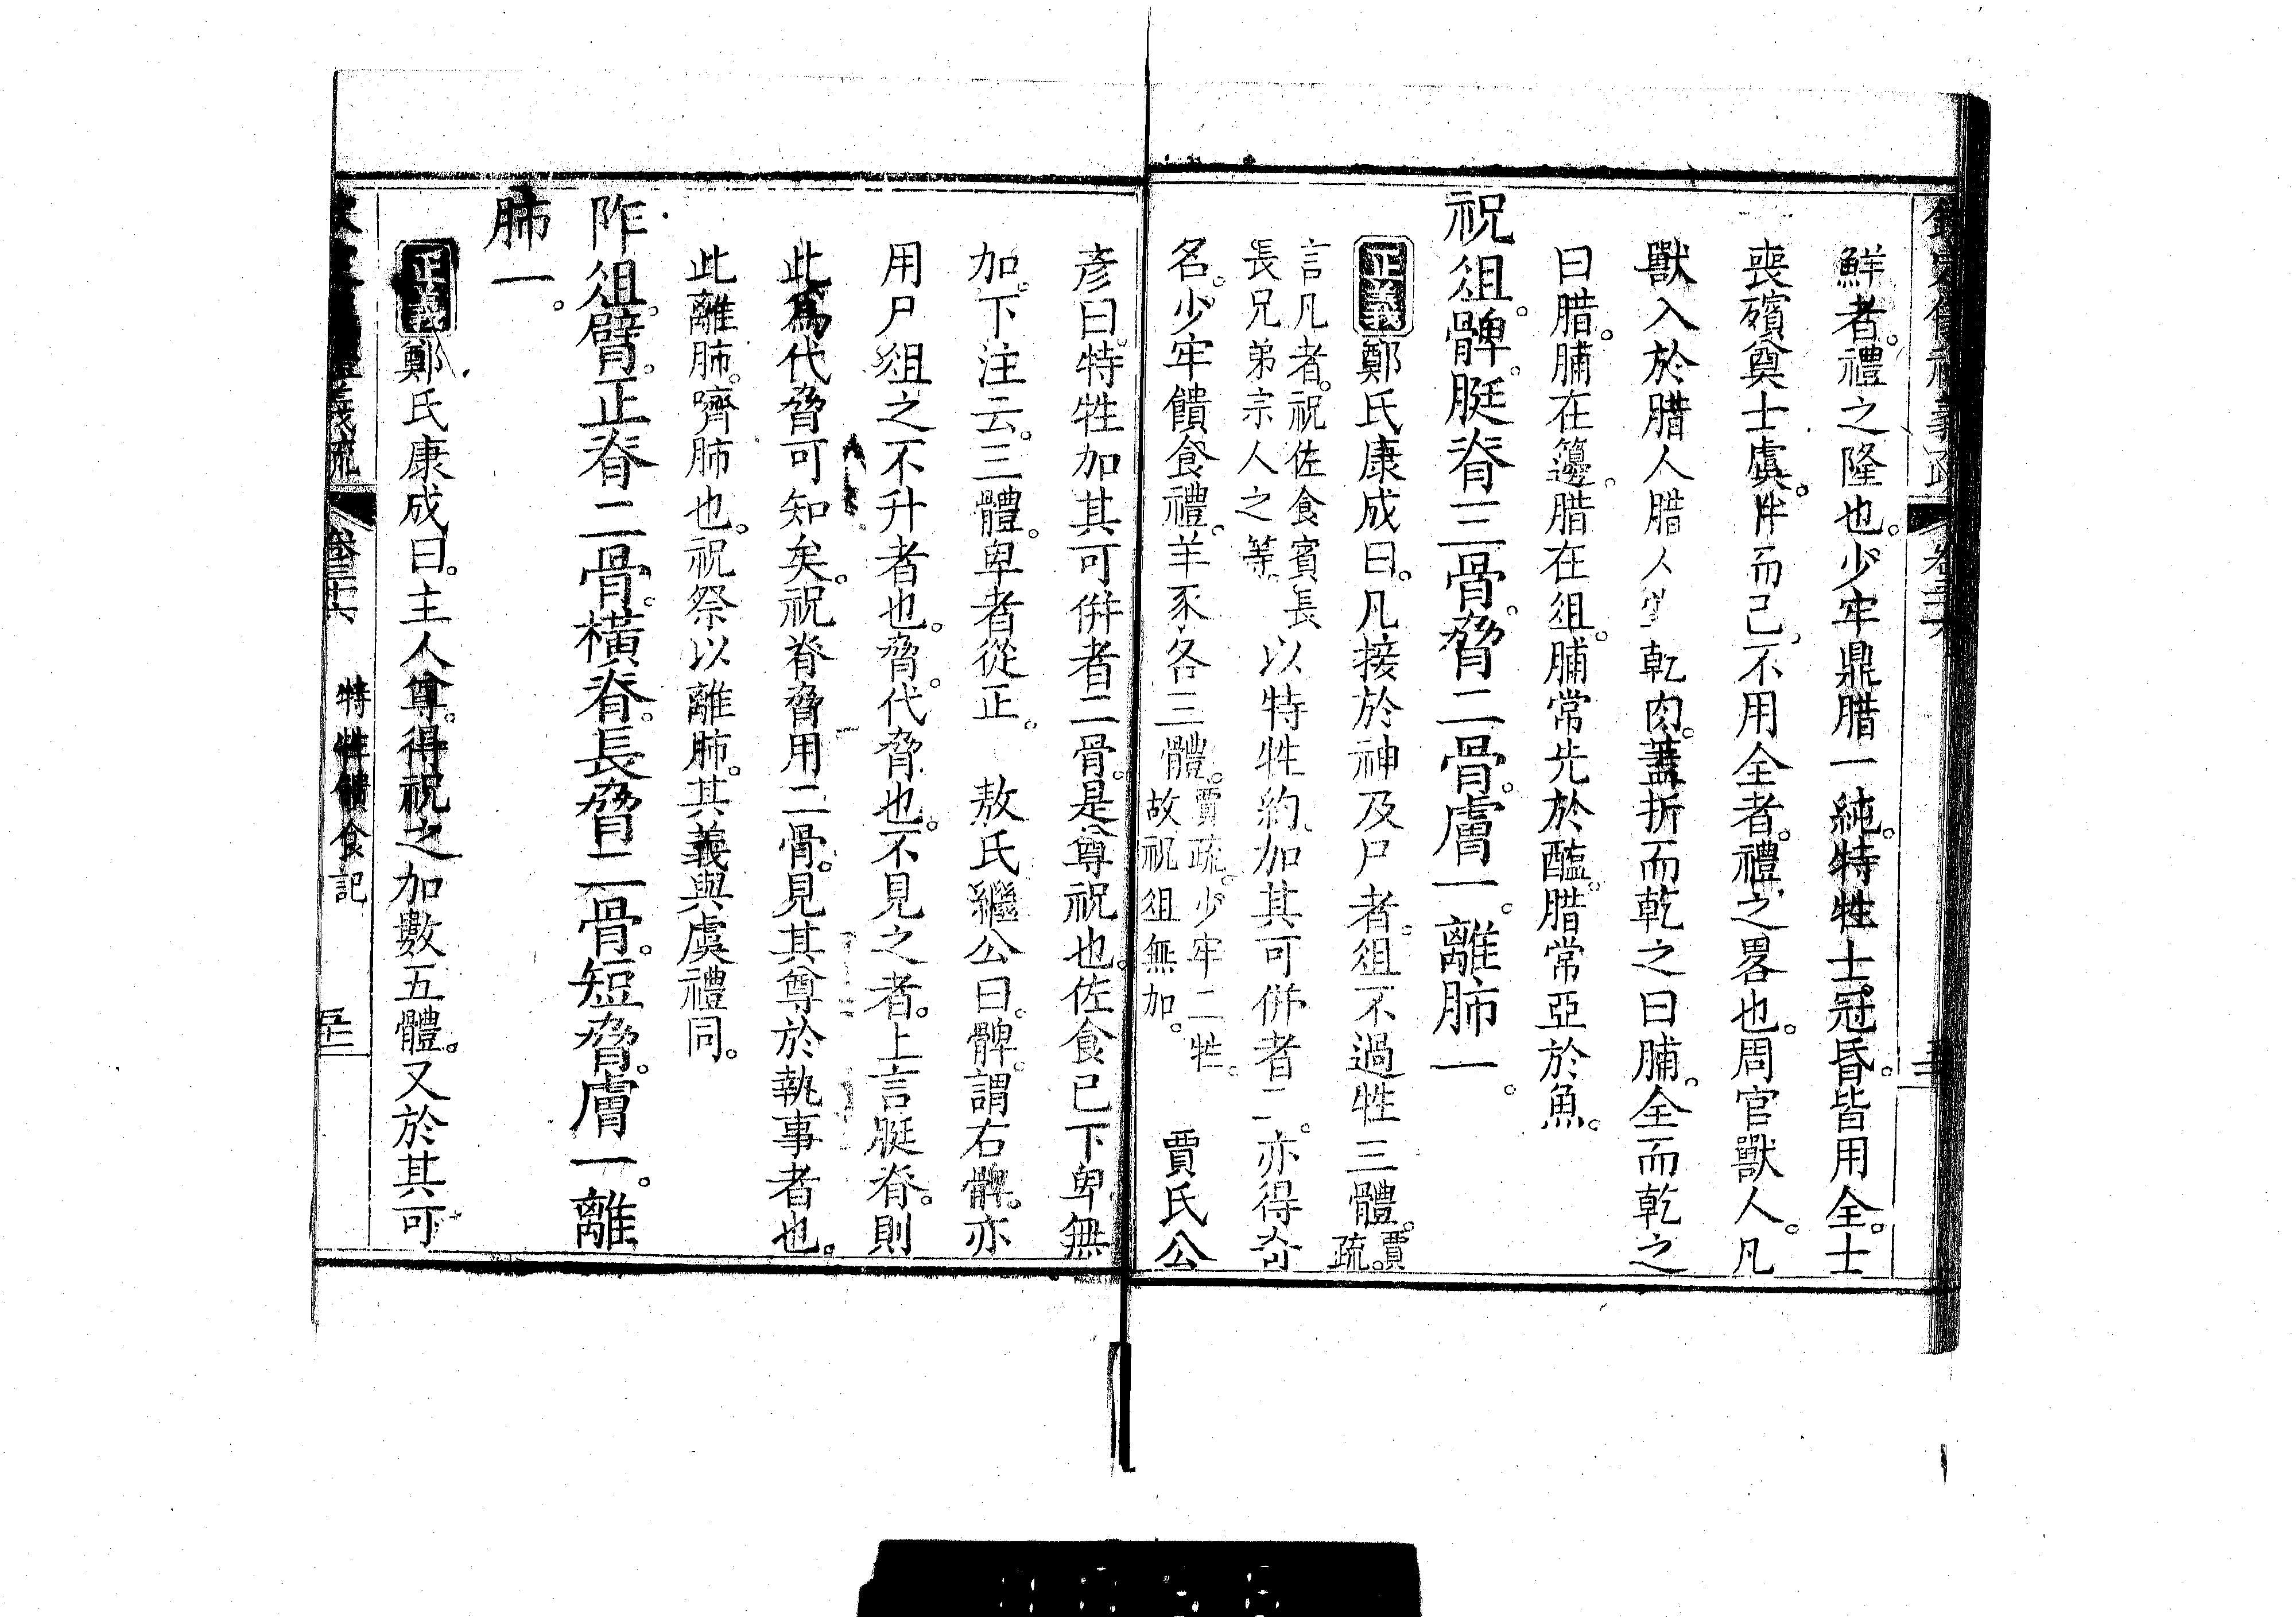 鮮者。禮之隆也。少牢鼎腊一純。特牲士冠昏。皆用全。士
喪殯奠士虞。胖而已。不用全者。禮之畧也。周官獸人。凡
獸入於腊人腊人乾肉。蓋折而乾之曰脯。全而乾之
曰腊。脯在籩。腊在俎。脯常先於醢。腊常亞於魚。
祝俎。髀。脡脊二骨。脅二骨。膚一。離肺一。
正義鄭氏康成曰。凡接於神及尸者。俎不過牲三體。賈疏。
言凡者。祝佐食賓長
長兄弟宗人之等。
以特牲約。加其可併者二。亦得奇
名。少牢饋食禮。羊豕各三體。賈疏。少牢二牲。
故祝俎無加。
賈氏公
彥曰。特牲加其可併者二骨。是尊祝也。佐食已下卑。無
加。下注云。三體。卑者從正。 敖氏繼公曰。髀。謂右髀。亦
用尸俎之不升者也。脅。代脅也。不見之者。上言脡脊。則
此爲代脅可知矣。祝脊脅用二骨。見其尊於執事者也。
此離肺。嚌肺也。祝祭以離肺。其義與虞禮同。
阼俎。臂。正脊二骨。橫脊。長脅二骨。短脅。膚一。離
肺一。
正義鄭氏康成曰。主人尊。得祝之加數五體。又於其可
義疏 卷三十六 特牲饋食記